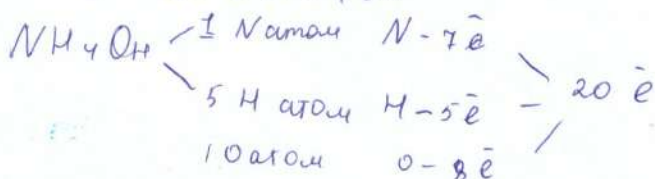 NH₄OH 1 N атом N - 7ē
5 H атом H - 5ē - 20 ē
1 O атом O - 8ē